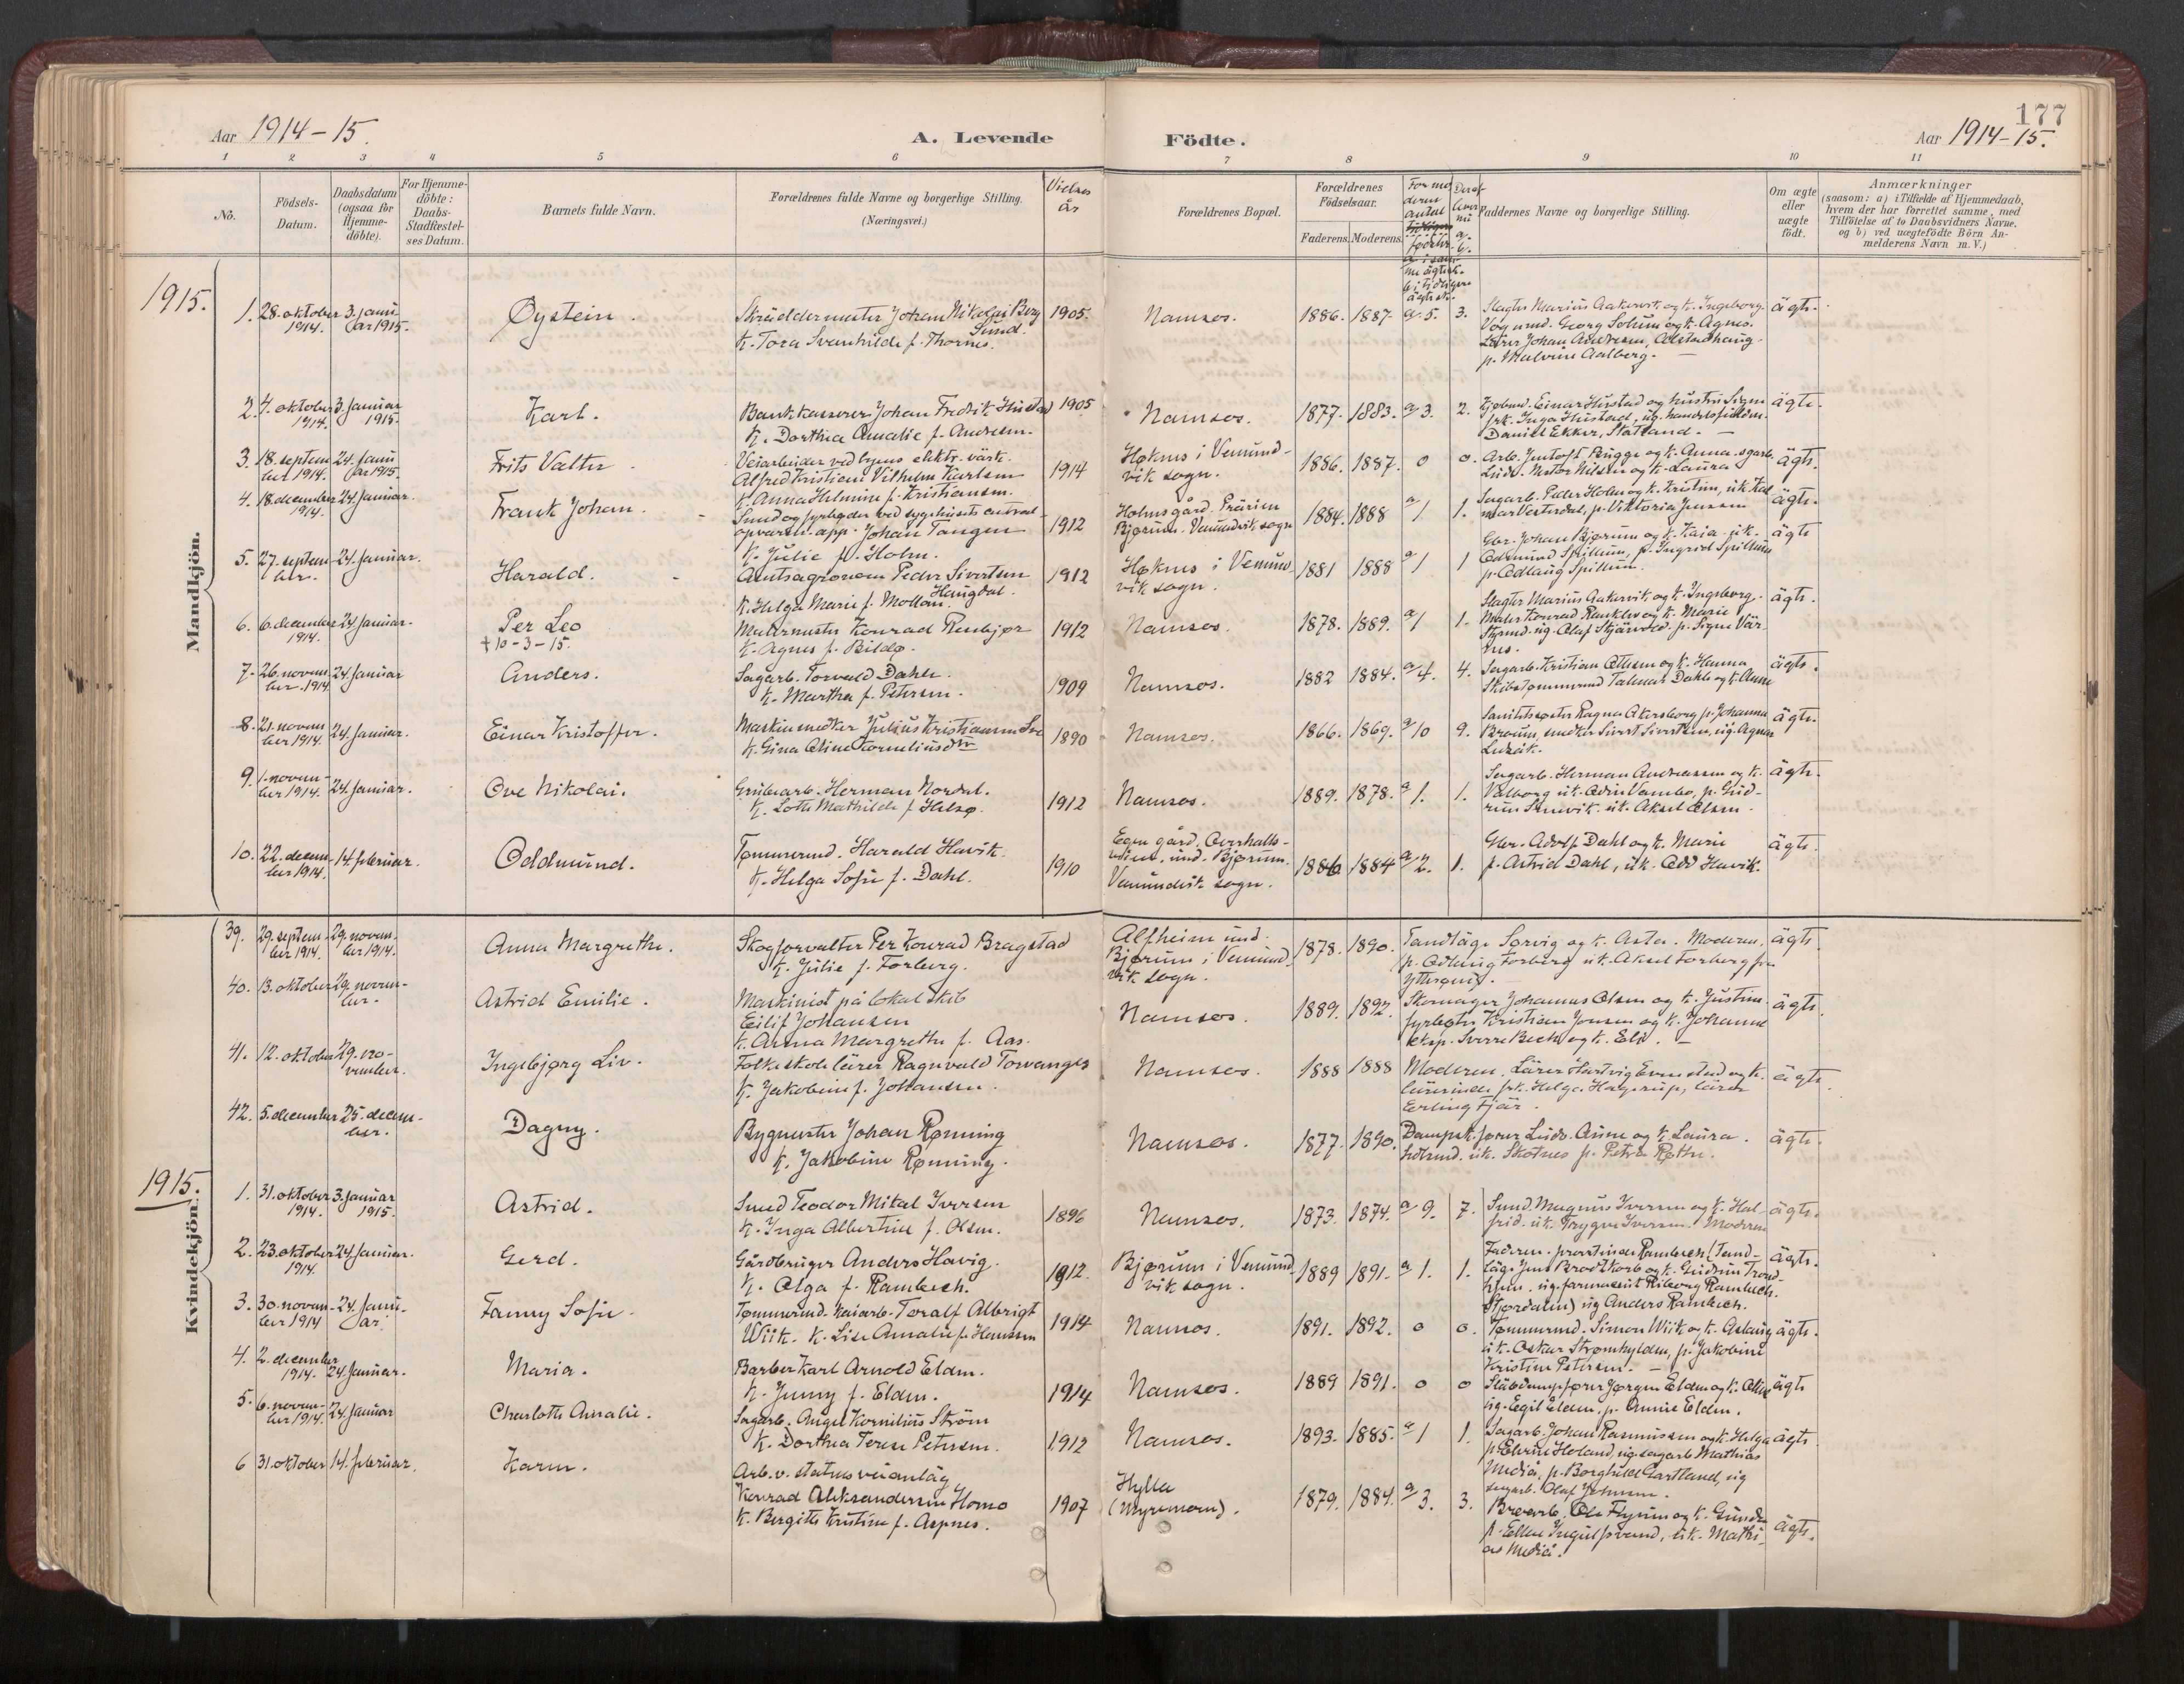 177
Aar 1914-15.
A. Levende
Födte.
Aar 1914-15.
1 2 3 4 5 6 7 8 9 10 11
No.
Födsels-
Datum.
Daabsdatum
(ogsaa for
Hjemme-
döbte).
For Hjemme-
döbte:
Daabs-
Stadfæstel-
ses Datum.
Barnets fulde Navn.
Forældrenes fulde Navne og borgerlige Stilling.
(Næringsvei.)
Vielses
år
Forældrenes Bopæl.
Forældrenes
Födselsaar.
Faderens. Moderens.
Faddernes Navne og borgerlige Stilling.
Om ægte
eller
uægte
födt.
Anmærkninger
(saasom: a) i Tilfælde af Hjemmedaab,
hvem der har forrettet samme, med
Tilföielse af to Daabsvidners Navne.
og b) ved uægtefödte Börn An-
melderens Navn m. V.)
Mandkjön.
1915.
1. 28. oktober 1914. 3. janu
ar 1915.
Øystein.
Skræddermester Johan Nikolai Berg
Sund.
K. Tora Svanhilde f. Thornes.
1905.
Namsos.
1886. 1887. a 5. 3.
Slagter Marius Aakervik og k. Ingeborg.
Vognmd. Georg Solum og k. Agnes.
Lærer Johan Andresen,
p. Malvine Aalberg.
ägte.
2. 4. oktober 1914. 3. januar
1915.
Karl.
Bankkasserer Johan Fredrik Hustad
K. Dorthea Amalie f. Andresen.
1905
Namsos.
1877. 1883. a 3. 2.
Kjøbmd. Einar Hustad og hustru Signe
frk. Inga Hustad, ug. handelsfuldm.
Daniel Ekker, Statland.
ägte.
3. 18. septem
ber 1914. 24. janu
ar 1915.
Frits Valter
Veiarbeider ved byens elektr. värk.
Alfred Kristian Vilhelm Karlsen
K. Anna Helmine f. Kristiansen.
1914
Høknes i Vemund-
vik sogn.
1886. 1887. 0 0.
Arb. Jentoft Brugge og k. Anna. sgarb.
Ludv. Nestor Nilsen og k. Laura
ägte.
4. 18. december
1914. 24. januar.
Frank Johan.
Smed og fyrbøder ved sygehusets central-
opvarm. app. Johan Tangen
K. Julie f. Holm.
1912
Holmsgård Prärien
Bjørum. Vemundvik sogn
1884. 1888 a 1 1.
Sagarb. Peder Holm og k. Kristine, uk. Hal
mar Vesterdal, p. Viktoria Jensen
ägte.
5. 27. septem
ber. 24. januar.
Harald.
Amtsagronom Peder Sivertsen
Haugdal.
K. Helga Marie f. Mollan.
1912
Høknes i Vemund-
vik sogn.
1881 1888 a 1 1
Gbr. Johan Bjørum og k. Kaia. uk.
Odmund Spillum, p. Ingrid Spillum
p. Odlaug Spillum.
ägte
6. 6. december
1914. 24. januar.
Per Leo
+ 10-3-15.
Malermester Konrad Rusbjør
K. Agnes f. Bildø.
1912
Namsos.
1878. 1889. a 1 1.
Slagter Marius Aakervik og k. Ingeborg.
Maler Konrad Ranklev og k. Marie
Styrmd. ug. Olaf Skjärvold. p. Signe Vär
nes.
ägte.
7. 26. novem
ber. 1914. 24. januar
Anders.
Sagarb. Torvald Dahle.
K. Martha f. Petersen.
1909
Namsos.
1882 1884. a 4. 4.
Sagarb. Kristian Ottesen og k. Hanna
Skibstømmermd Talmas Dahle og k. Anne
ägte.
8. 21. novem
ber 1914. 24. januar.
Einar Kristoffer.
Maskinsnedker Julius Kristiansen
K. Gina Oline Korneliusdtr
1890
Namsos.
1866. 1869. a 10 9.
Sanitetssøster Ragna Akersborg p. Johanna
Broum, snedker Sivert Sivertsen, ug. Agnes
ägte.
9. 1. novem-
ber 1914. 24. januar.
Ove Nikolai.
Grubearb. Herman Nordal.
K. Lotte Mathilde f. Helsø.
1912
Namsos.
1889. 1878. a 1. 1.
Sagarb. Herman Andreassen og k.
Valborg uk. Odin Vambo, p. Gud-
run Senevik. uk. Aksel Olsen.
ägte.
10. 22. decem-
ber 1914. 14. februar.
Oddmund.
Tømmermd. Harald Havik.
K. Helga Sofie f. Dahl.
1910
Egen gård, Overhalls-
veien, und. Bjørum.
Vemundvik sogn.
1886. 1884 a 2. 1.
Gbr. Adolf Dahl og k. Marie
p. Astrid Dahl, uk. Odd Havik.
ägte.
Kvindekjön.
39. 29. septem-
ber 1914. 29. novem-
ber 1914.
Anna Margrethe.
Skogforvalter Per Konrad Bragstad
K. Julie f. Forberg.
Alfheim und.
Bjørum i Vemund-
vik sogn.
1878. 1890.
Tandläge Sørvig og k. Asta. Moderen.
p. Odlaug Forberg uk. Aksel Forberg fra
Ytterøen.
ägte.
40. 13. oktober 29. novem-
ber.
Astrid Emilie.
Maskinist på lokalskib
Eilif Johansen
K. Anna Margrethe f. Aas.
Namsos.
1889. 1892.
Skomager Johannes Olsen og k. Justine
fyrbøter Kristian Jensen og k. Johanne
eksp. Sverre Bech og k. Eli.
ägte.
41. 12. oktober 29. no-
vember.
Ingebjørg Liv.
Folkeskolelärer Ragnvald Torvanger
K. Jakobine f. Johansen.
Namsos.
1888 1888
Moderen. Lärer Hartvig Evenstad og k.
lärerinde frk. Helga Hagerup, lärer
Erling Fjär.
ägte.
42. 5. december 25. decem-
ber.
Dagny.
Bygmester Johan Rønning
K. Jakobine Rønning.
Namsos.
1877. 1890.
Dampsk. fører Ludv. Aune og k. Laura.
uk. Skotnes p. Petra Røthe.
ägte.
1915.
1. 31. oktober
1914. 3. januar
1915.
Astrid.
Smed Teodor Mikal Iversen
K. Inga Albertine f. Olsen.
1896
Namsos.
1873. 1874. a 9. 7.
Smed. Magnus Iversen og k. Hal
frid. uk. Trygve Iversen. Moderen
ägte.
2. 23. oktober
1914. 24. januar.
Gerd.
Gårdbruger Anders Havig.
K. Olga f. Rambech.
1912.
Bjørum i Vemund-
vik sogn.
1889 1891. a 1. 1.
Faderen. provstinde Rambech (Tand-
läge Jens Brodtkorb og k. Gudrun Trond-
hjem. ug. farmaceut Riborg Rambech.
Stjørdalen) ug Anders Rambech.
ägte.
3. 30. novem-
ber 1914 24. janu-
ar.
Fanny Sofie.
Tømmermd. kaiarb. Toralf Albrigt
Wiik. K. Lise Amalie f. Hanssen
1914
Namsos.
1891. 1892. 0 0.
Tømmermd. Simon Wiik og k. Aslaug
uk. Oskar Strømhylden, p. Jakobine
Kristine Petersen.
ägte.
4. 2. december
1914. 24. januar.
Maria.
Barber Karl Arnold Elden.
K. Jenny f. Elden.
1914
Namsos.
1889 1891. 0 0
Släbdampfører Jørgen Elden og k. Oline
ug. Egil Elden. p. Annie Elden.
ägte
5. 6. novem-
ber 1914. 24. januar
Charlotte Amalie.
Sagarb. Angel Kornelius Strøm
K. Dorthea Terese Petersen.
1912
Namsos.
1893. 1885. a 1 1.
Sagarb. Johan Rasmussen og k. Helga
p. Elvine Holand, ug. sagarb Mathias
Mediå, p. Borghild Gartland, ug
sagarb. Olaf Johnsen.
ägte
6 31. oktober 14. februar.
Karen.
Arb. v. statens veianläg
Konrad Aleksandersen Homo
K. Bergitte Kristine f. Aspnes.
1907
Hylla
(Myremoen).
1879. 1884. a 3. 3.
Broarb. Ole Flyum og k. Gunda
p. Ellen Ingulfsvand, uk. Mathi-
as Mediå.
ägte.